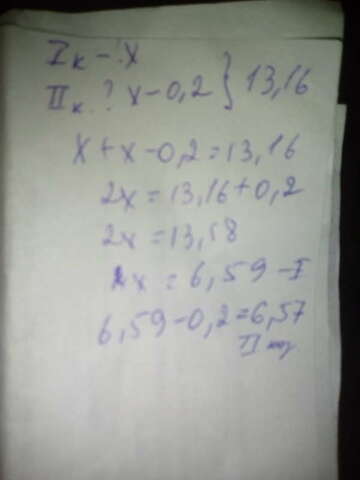 Iк - ? x
IIк. ? x - 0,2 } 13,16
x + x - 0,2 = 13,16
2x = 13,16 + 0,2
2x = 13,18
x = 6,59 - I
6,59 - 0,2 = 6,57
II